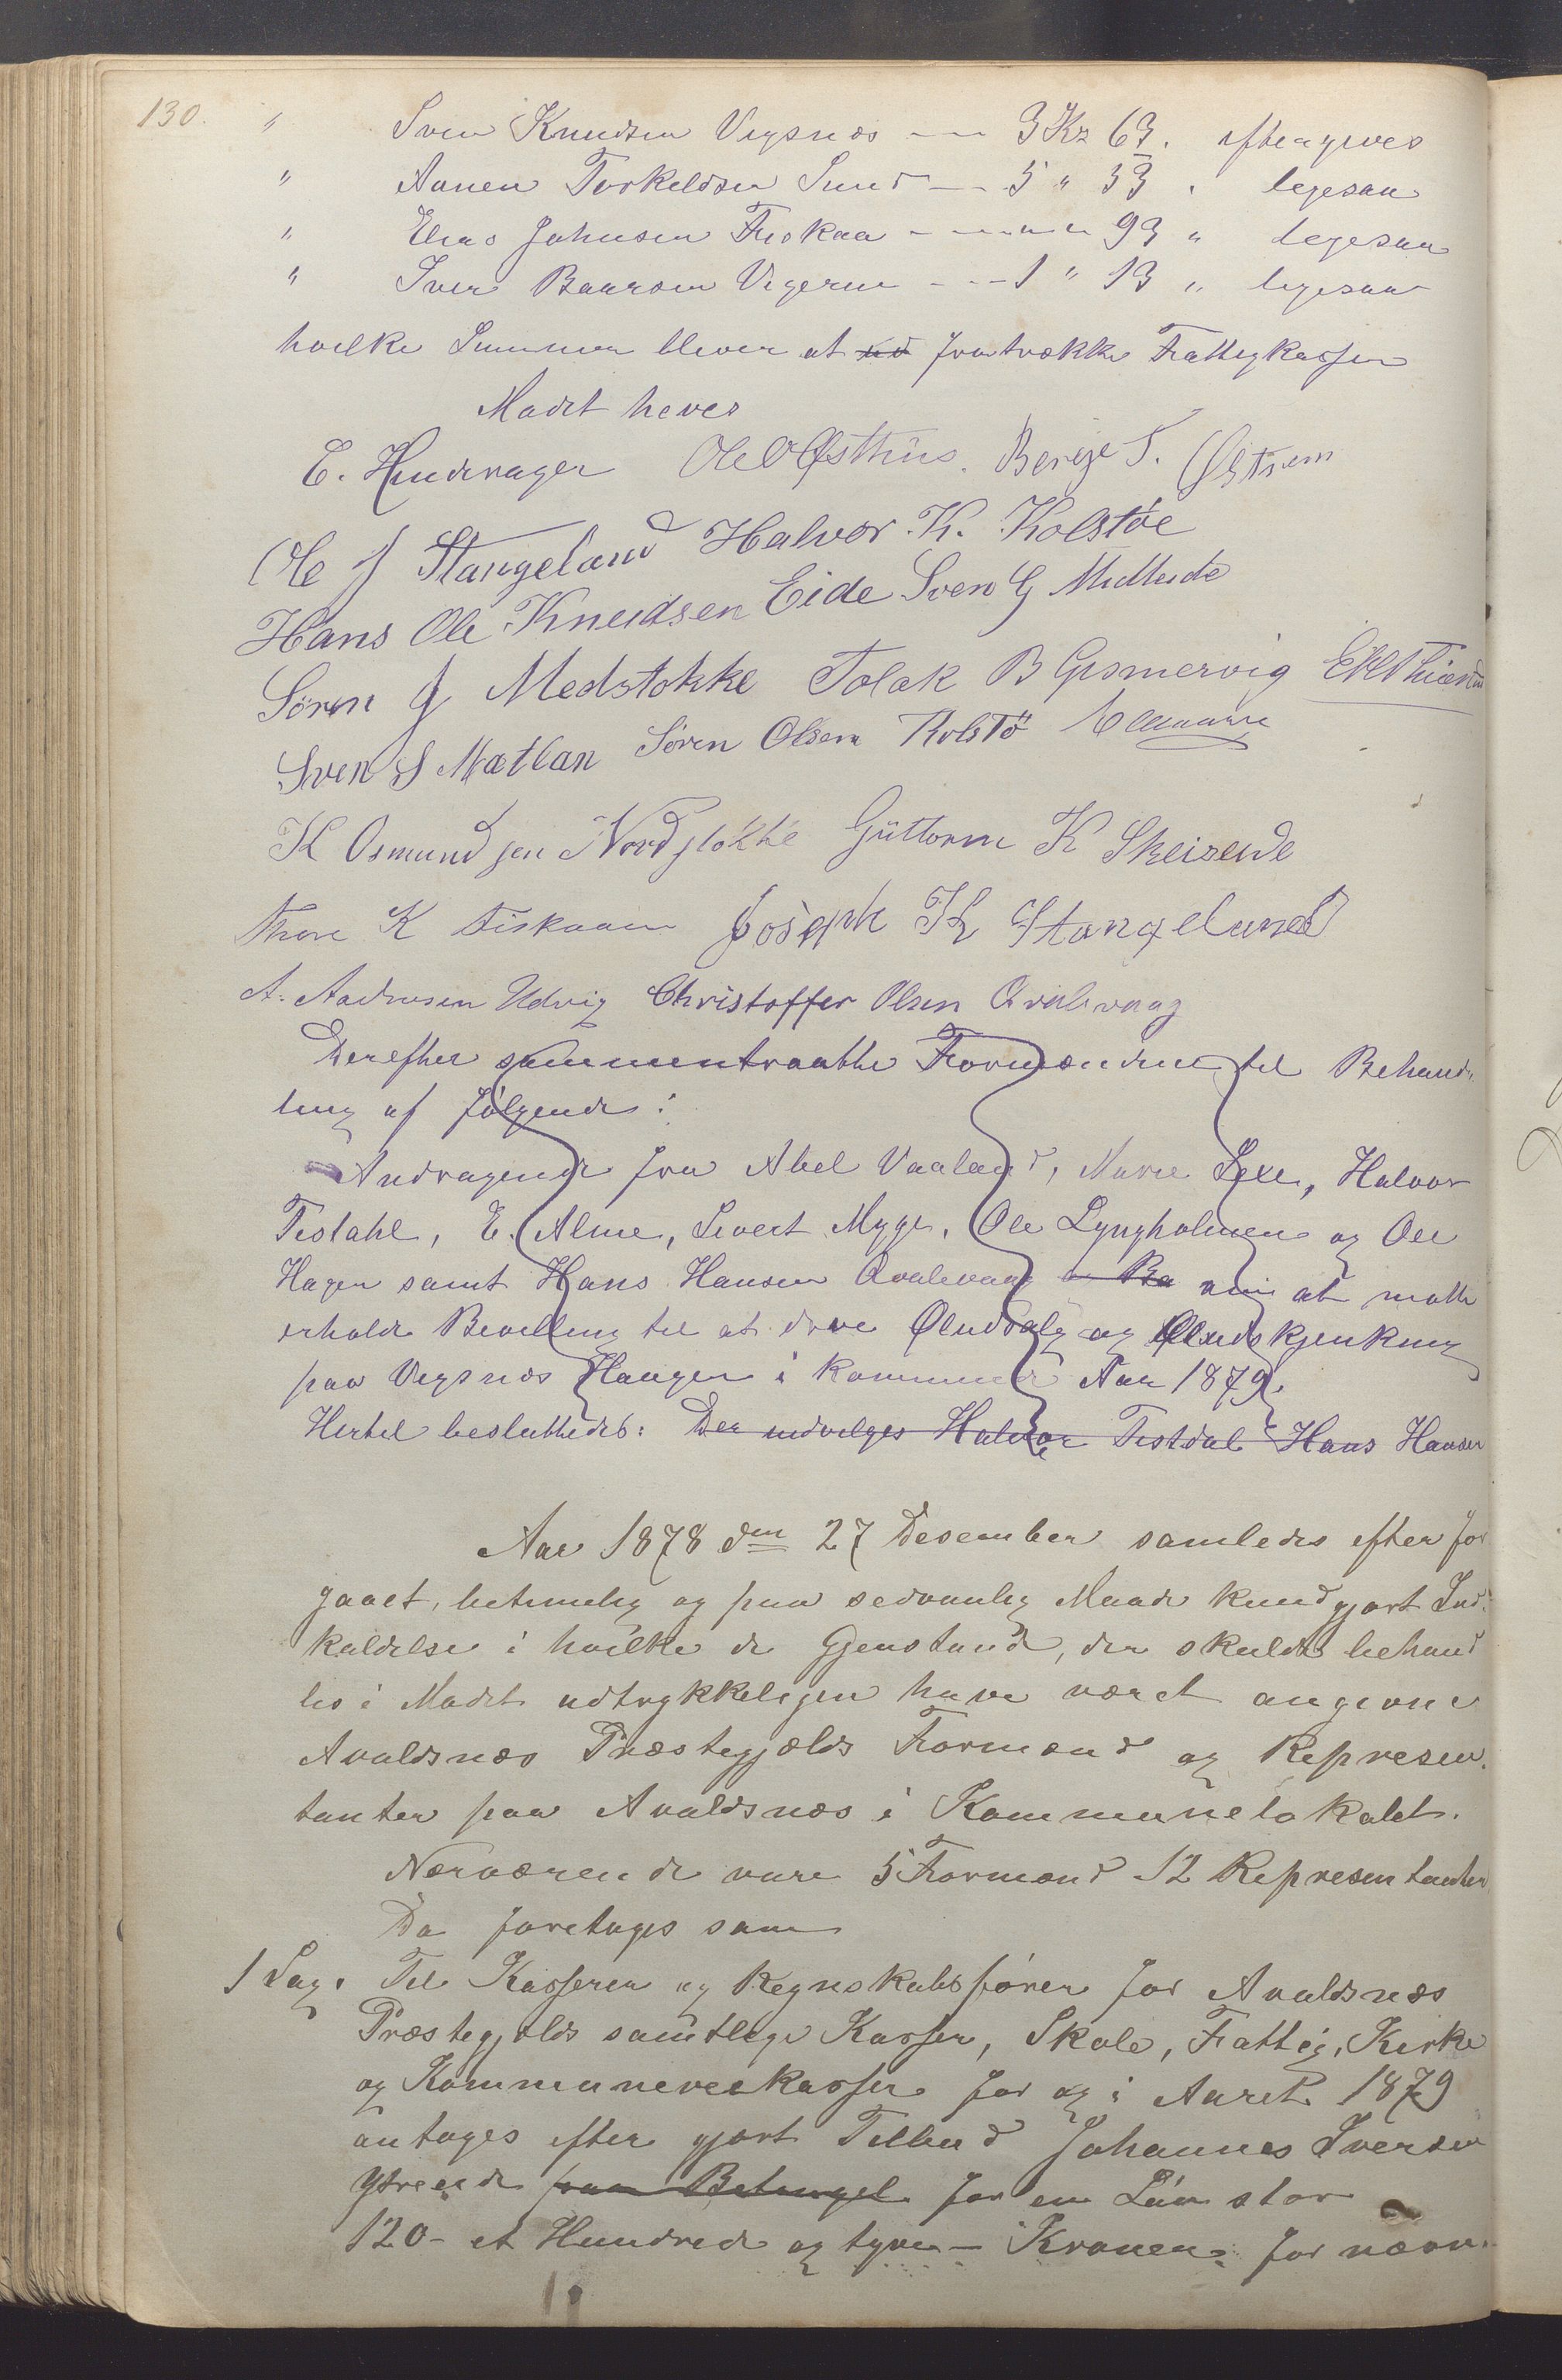 130.
" Sven Knudsen Vigsnæs — 3 Kr 63. eftergives
" Aanen Torkeldsen Sund — 5 " 53 . ligesaa
" Elias Johnsen Fiskaa — " 93 " ligesaa
" Iver Baarsen Vigerne — 1 " 13 " ligesaa
hvilke Summer bliver at ud fratrække Fattigkassen
Mødet heves
E. Hindevager Ole O Østhus. Berge T. Østrem
Ole J Stangeland Halvor K. Kolstøe
Hans Ole Knudsen Eide Sven G Mitleide
Søren J Medstokke Tolak B Gismervig
Sven S Mætlan Søren Olsen Kolstö
K Osmundsen Nordstokke Güttorm K Skeiseide
Thore K Fiskaaen Joseph K Stangeland
A. Andersen Udvig Christoffer Olsen Qvalevaag
Derefter sammentraatte Formændene til Behand-
ling af følgende:
Andragende fra Abel Vaaland, Naree Lexe, Halvor
Tistahl, E. Alme, Sivert Mygge, Ole Lyngholmen og Ole
Hagen samt Hans Hansen Qvalevaag Ba om at maatte
erholde Bevilling til at drive Øludsalg og Øludskjenkning
paa Vigsnæs Haugen i kommende Aar 1879.
Hertil besluttedes: Der udvelges Halvor Tistdal Hans Hansen
Aar 1878 den 27 Desember samledes efter for
gaaet, betimelig og paa sedvanlig Maade kundgjort Ind-
kaldelse i hvilke de Gjenstande, der skulde behand
les i Mødet udtrykkeligen have været angivne
Avaldsnæs Præstegjelds Formænd og Represen-
tanter paa Avaldsnæs i Kommunelokalet.
Nærværende vare 5 Formænd 12 Representanter
Da foretages som
1 Sag. Til Kasserer og Regnskabsfører for Avaldsnæs
Præstegjelds samtlige Kasser, Skole, Fattig, Kirke
og Kommuneveikasser for og i Aaret 1879
antoges efter gjort Tilbud Johannes Iversen
Ytreeide paa Betingel for en Løn stor
120 - et Hundrede og tyve - Kroner for nævn-